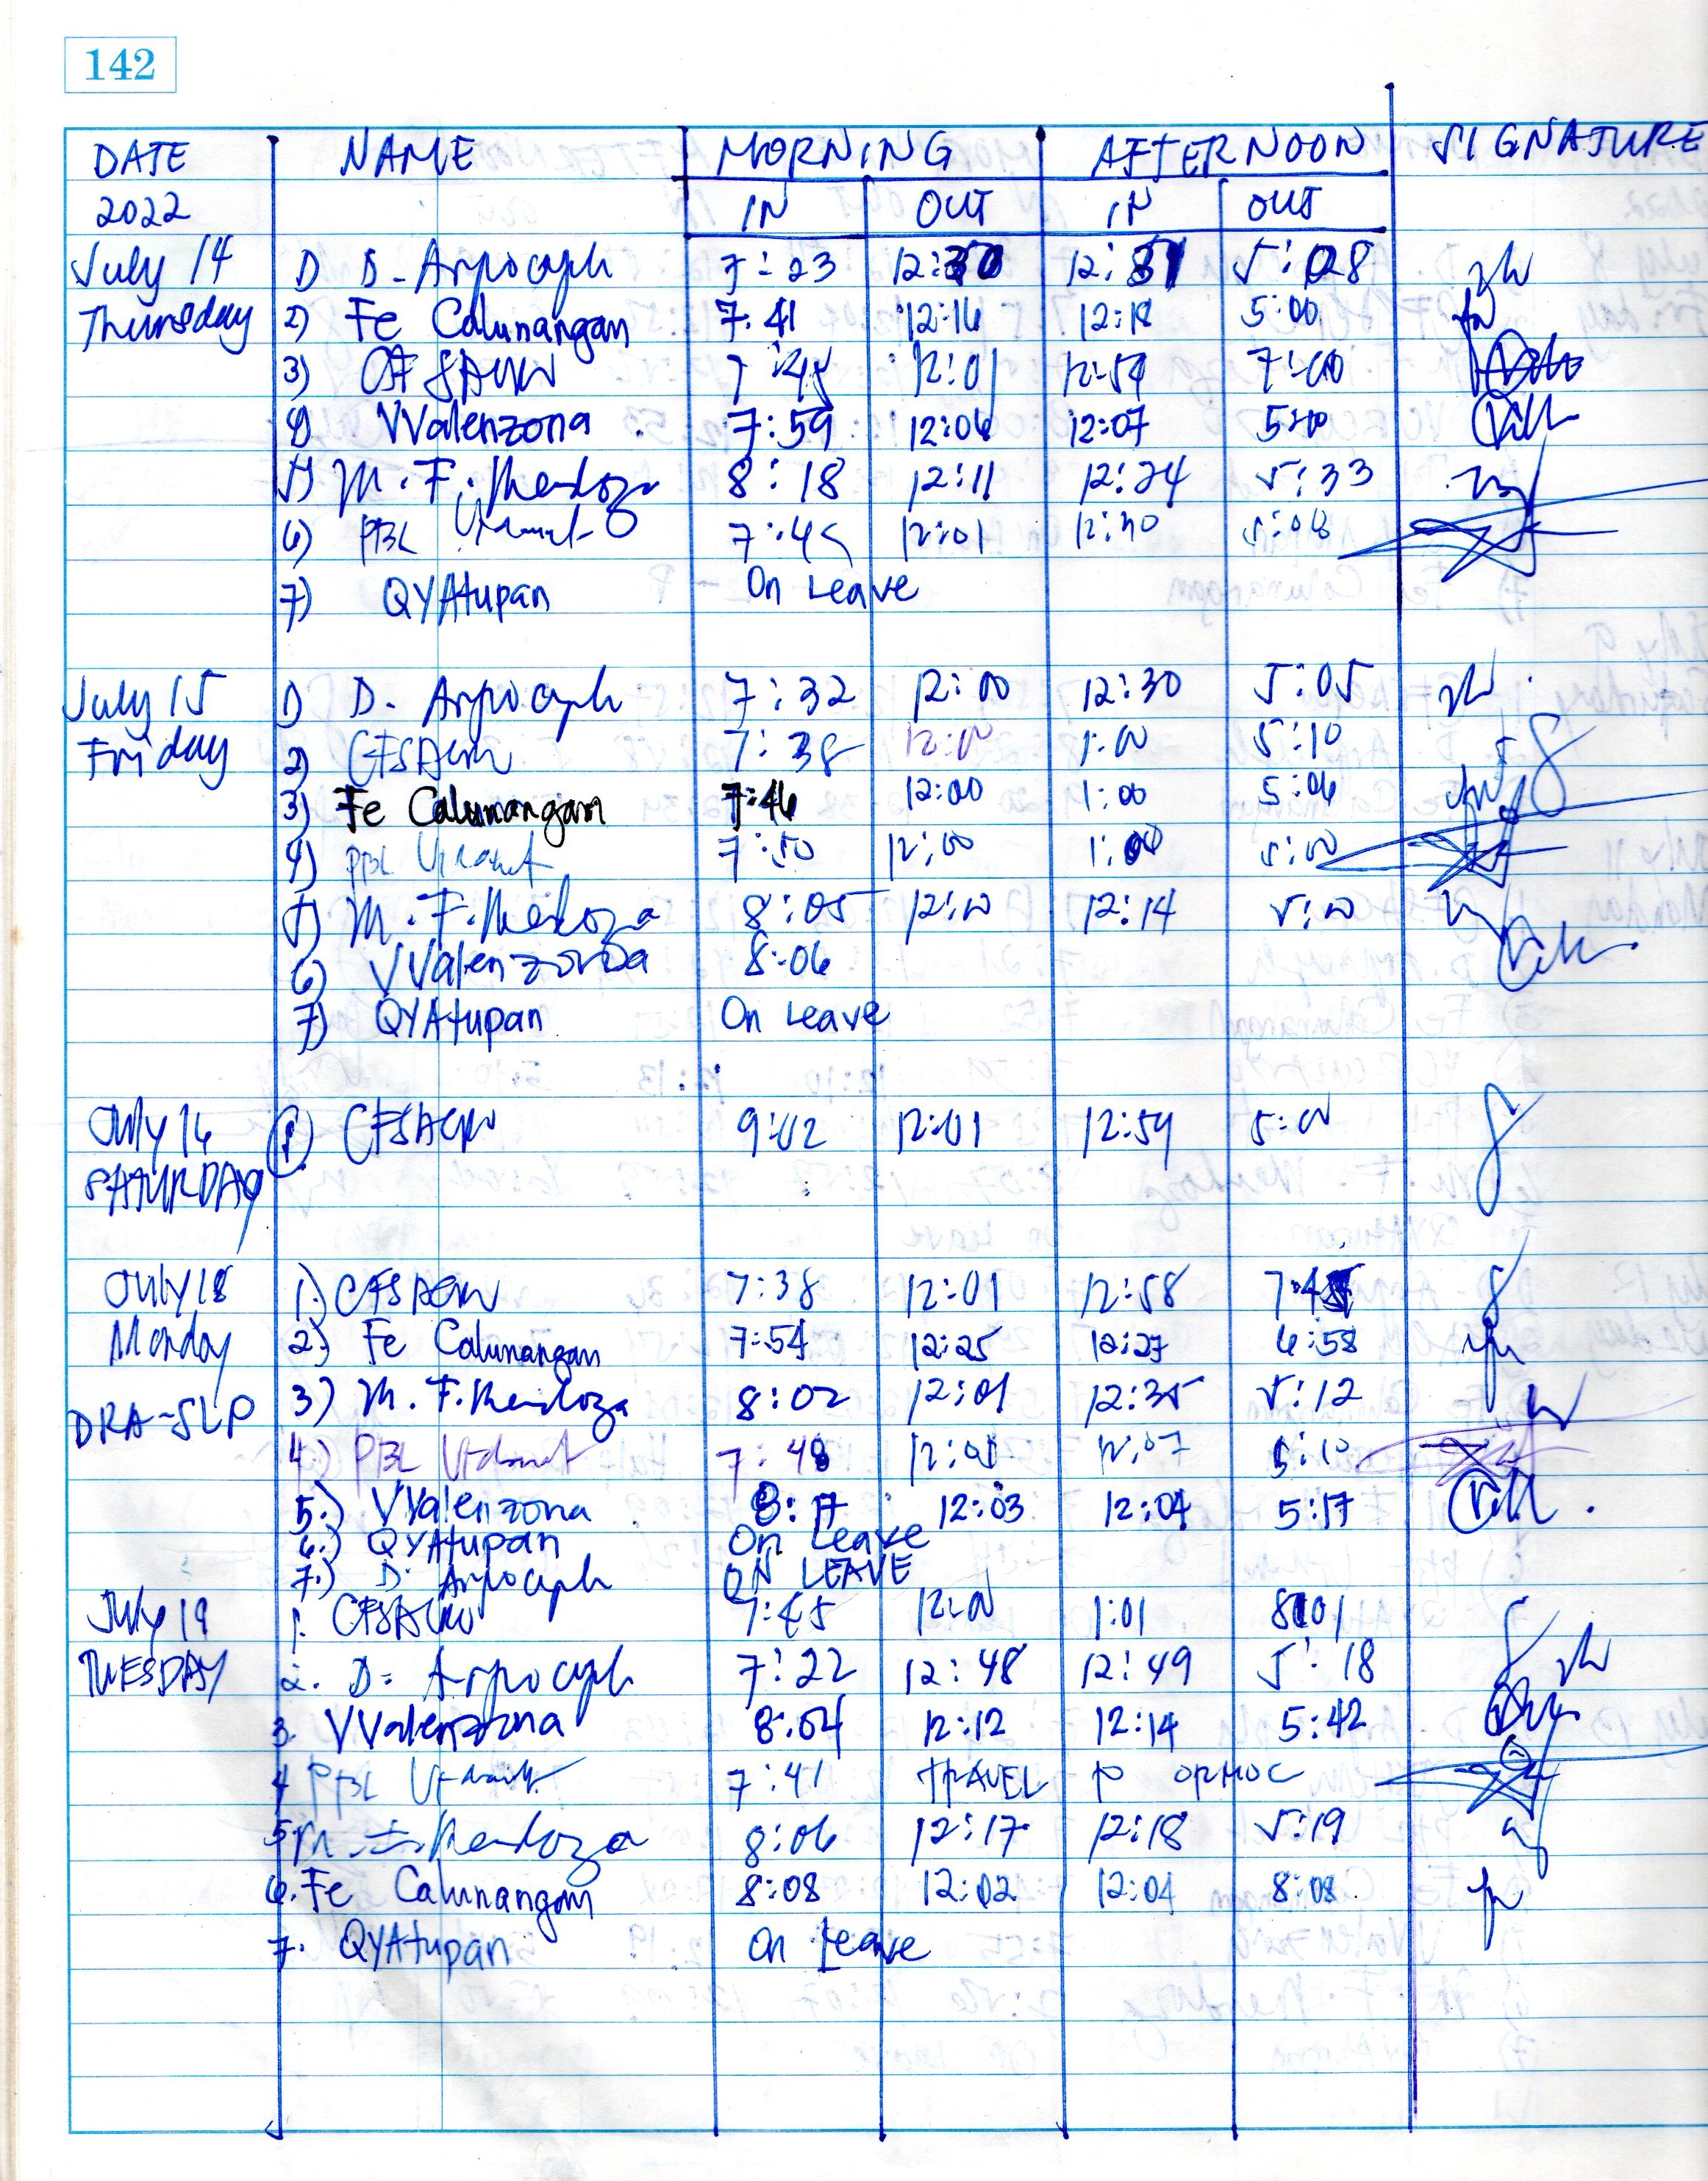 142
DATE NAME MORNING AFTERNOON SIGNATURE
2022 IN OUT IN OUT
July 14 1) D. 7:23 12:30 12:31 5:08
Thursday 2) Fe Calunangan 7:41 12:16 12:18 5:00
3) 7:45 12:01 12:59 7:00
4) VValenzona 7:59 12:06 12:07 5:00
5) M. F. Mendoza 8:18 12:11 12:24 5:33
6) PBL 7:45 12:01 12:30 5:08
7) QYAtupan On Leave
July 15 1) D. 7:32 12:00 12:30 5:05
Friday 2) 7:38 12:00 1:00 5:10
3) Fe Calunangan 7:46 12:00 1:00 5:06
4) PBL 7:50 12:00 1:00 5:00
5) M. F. Mendoza 8:05 12:10 12:14 5:10
6) VValenzona 8:06
7) QYAtupan On Leave
July 16 1) 9:02 12:01 12:59 5:00
SATURDAY
July 18 1.) 7:38 12:01 12:58
Monday 2.) Fe Calunangan 7:54 12:25 12:27 6:58
3) M. F. Mendoza 8:02 12:01 12:35 5:12
DRA-SLP
4.) PBL 7:48 12:01 12:07 5:10
5.) VValenzona 8:17 12:03 12:04 5:17
6.) QYAtupan On Leave
7.) D. ON LEAVE
July 19 1. 7:45 12:00 1:01 8:01
TUESDAY 2. D. 7:22 12:48 12:49 5:18
3. VValenzona 8:04 12:12 12:14 5:42
4 PBL 7:41 TRAVEL ORMOC
5. M. F. Mendoza 8:06 12:17 12:18 5:19
6. Fe Calunangan 8:08 12:02 12:04 8:08
7. QYAtupan On Leave